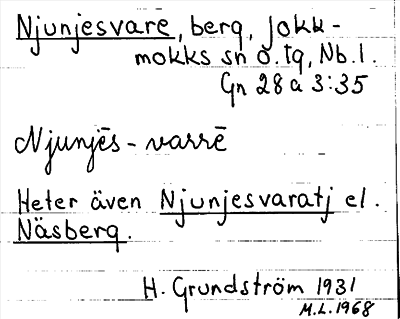 Njunjesvare, berg, Jokk-
mokks sn o. tg, Nb. l.
Gn 28 a 3:35
Njunjēs - varrē
Heter även Njunjesvaratj el.
Näsberg.
H. Grundström 1931
M.L. 1968